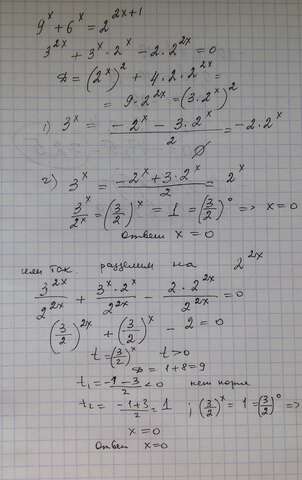 9^x + 6^x = 2^{2x+1}
3^{2x} + 3^x · 2^x - 2 · 2^{2x} = 0
D = (2^x)^2 + 4 · 2 · 2^{2x} =
= 9 · 2^{2x} = (3 · 2^x)^2
1) 3^x = \frac{-2^x - 3 · 2^x}{2} = -2 · 2^x
∅
2) 3^x = \frac{-2^x + 3 · 2^x}{2} = 2^x
\frac{3^x}{2^x} = (\frac{3}{2})^x = 1 = (\frac{3}{2})^0 => x = 0
Ответ x = 0
или так разделим на 2^{2x}
\frac{3^{2x}}{2^{2x}} + \frac{3^x · 2^x}{2^{2x}} - \frac{2 · 2^{2x}}{2^{2x}} = 0
(\frac{3}{2})^{2x} + (\frac{3}{2})^x - 2 = 0
t = (\frac{3}{2})^x t > 0
D = 1 + 8 = 9
t_1 = \frac{-1 - 3}{2} < 0 нет корня
t_2 = \frac{-1 + 3}{2} = 1 ; (\frac{3}{2})^x = 1 = (\frac{3}{2})^0 =>
x = 0
Ответ x = 0